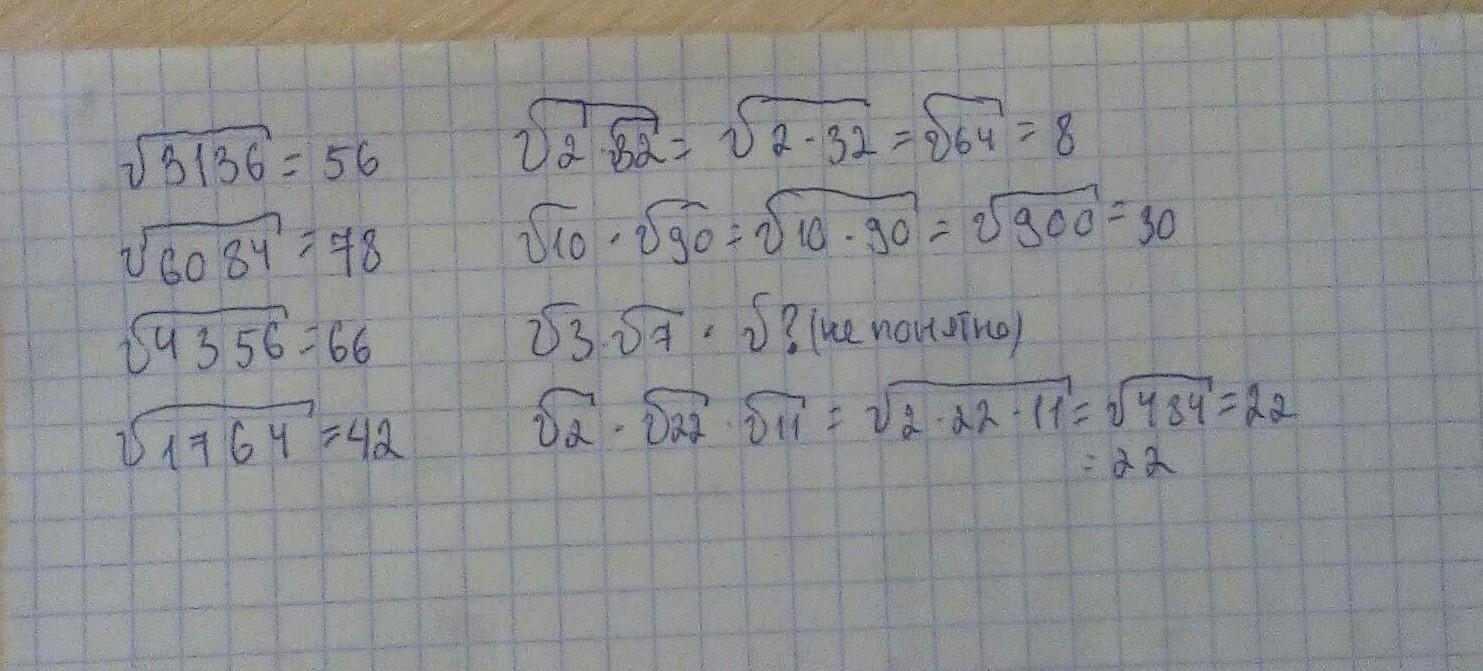 √3136 = 56
√6084 = 78
√4356 = 66
√1764 = 42
√2 · √32 = √2 · 32 = √64 = 8
√10 · √90 = √10 · 90 = √900 = 30
√3 · √7 · √? (не понятно)
√2 · √22 · √11 = √2 · 22 · 11 = √484 = 22
= 22